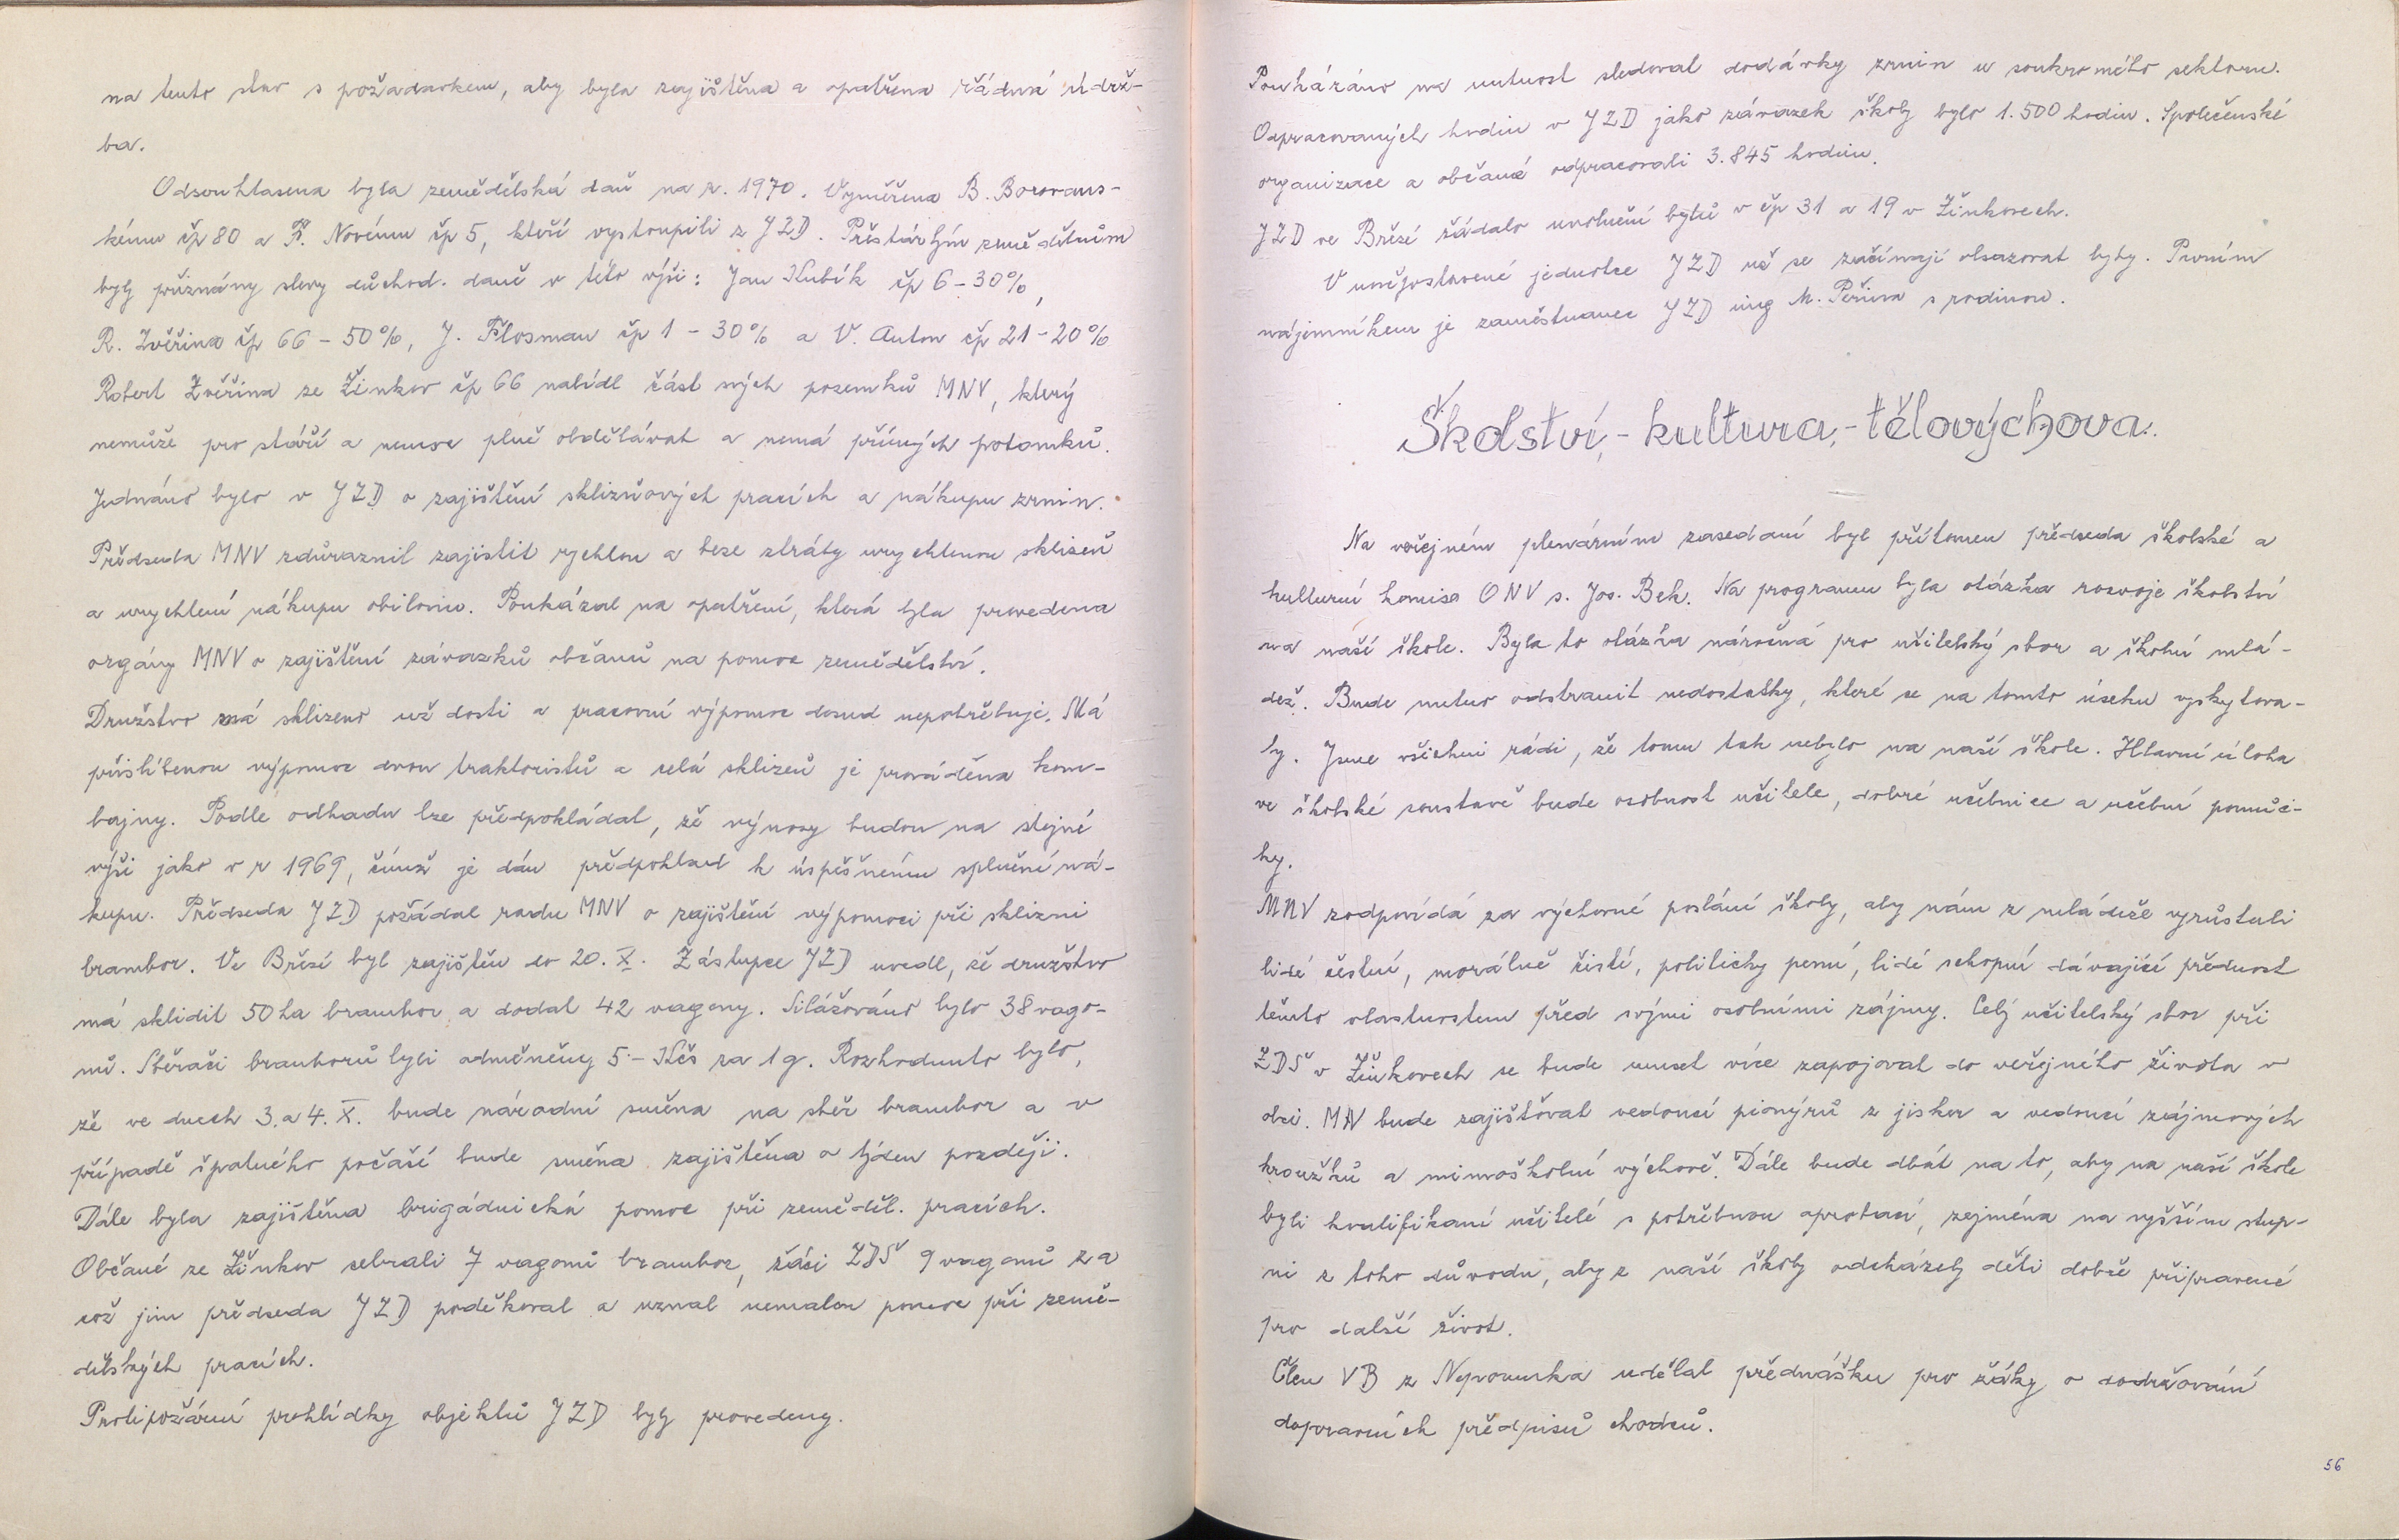 na tento stav s požadavkem, aby byla zajištěna a opatřena řádná údrž-
ba.
Odsouhlasena byla zemědělská daň na r. 1970. Vyměřena B. Borovans-
kému čp 80 a Fr. Novému čp 5, kteří vystoupili z JZD. Přestárlým zemědělcům
byly přiznány slevy důchod. daně v této výši: Jan Kubík čp 6 - 30%,
R. Zvěřina čp 66 - 50%, J. Flosman čp 1 - 30% a V. Anton čp 21 - 20%
Robert Zvěřina ze Žinkov čp 66 nabídl část svých pozemků MNV, který
nemůže pro stáří a nemoc plně obdělávat a nemá přímých potomků.
Jednáno bylo v JZD o zajištění sklizňových pracích a nákupu zrnin.
Předseda MNV zdůraznil zajistit rychlou a beze ztráty urychlenou sklizeň
a urychlení nákupu obilovin. Poukázal na opatření, která byla provedena
orgány MNV o zajištění závazků občanů na pomoc zemědělství.
Družstvo má sklizeno už dosti a pracovní výpomoc dosud nepotřebuje. Má
přislíbenou výpomoc dvou traktoristů a celá sklizeň je prováděna kom-
bajny. Podle odhadu lze předpokládat, že výnosy budou na stejné
výši jako v r 1969, čímž je dán předpoklad k úspěšnému splnění ná-
kupu. Předseda JZD požádal radu MNV o zajištění výpomoci při sklizni
brambor. Ve Březí byl zajištěn do 20. X. Zástupce JZD uvedl, že družstvo
má sklidit 50 ha brambor a dodat 42 vagony. Silážováno bylo 38 vago-
nů. Sběrači bramborů byli odměněny 5.- Kčs za 1 q. Rozhodnuto bylo,
že ve dnech 3. a 4. X. bude národní směna na sběr brambor a v
případě špatného počasí bude směna zajištěna o týden později.
Dále byla zajištěna brigádnická pomoc při zeměděl. pracích.
Občané ze Žinkov sebrali 7 vagonů brambor, žáci ZDŠ 9 vagonů za
což jim předseda JZD poděkoval a uznal nemalou pomoc při země-
dělských pracích.
Protipožární prohlídky objektů JZD byly provedeny.
Poukázáno na nutnost sledovat dodávky zrnin u soukromého sektoru.
Odpracovaných hodin v JZD jako závazek školy bylo 1.500 hodin. Společenské
organizace a občané odpracovali 3.845 hodin.
JZD ve Březí žádalo uvolnění bytů v čp 31 a 19 v Žinkovech.
V novějpostavené jednotce JZD už se začínají obsazovat byty. Prvním
nájemníkem je zaměstnanec JZD ing M. Peřina s rodinou.
Školství,- kultura,- tělovýchova.
Na veřejném plenárním zasedání byl přítomen předseda školské a
kulturní komise ONV s. Jos. Bek. Na programu byla otázka rozvoje školství
na naší škole. Byla to otázka náročná pro učitelský sbor a školní mlá-
dež. Bude nutno odstranit nedostatky, které se na tomto úseku vyskytova-
ly. Jsme všichni rádi, že tomu tak nebylo na naší škole. Hlavní úloha
ve školské soustavě bude osobnost učitele, dobré učebnice a učební pomůc-
ky.
MNV zodpovídá za výchovné poslání školy, aby nám z mládeže vyrůstali
lidé čestní, morálně čistí, politicky pevní, lidé schopní dávající přednost
těmto vlastnostem před svými osobními zájmy. Celý učitelský sbor při
ZDŠ v Žinkovech se bude muset více zapojovat do veřejného života v
obci. MNV bude zajišťovat vedoucí pionýrů z jisker a vedoucí zájmových
kroužků a mimoškolní výchově. Dále bude dbát na to, aby na naší škole
byli kvalifikaní učitelé s potřebnou aprobací, zejména na vyšším stup-
ni z toho důvodu, aby z naší školy odcházely děti dobře připravené
pro další život.
Člen VB z Nepomuka udělal přednášku pro žáky o dodržování
dopravních předpisů chodců.
56